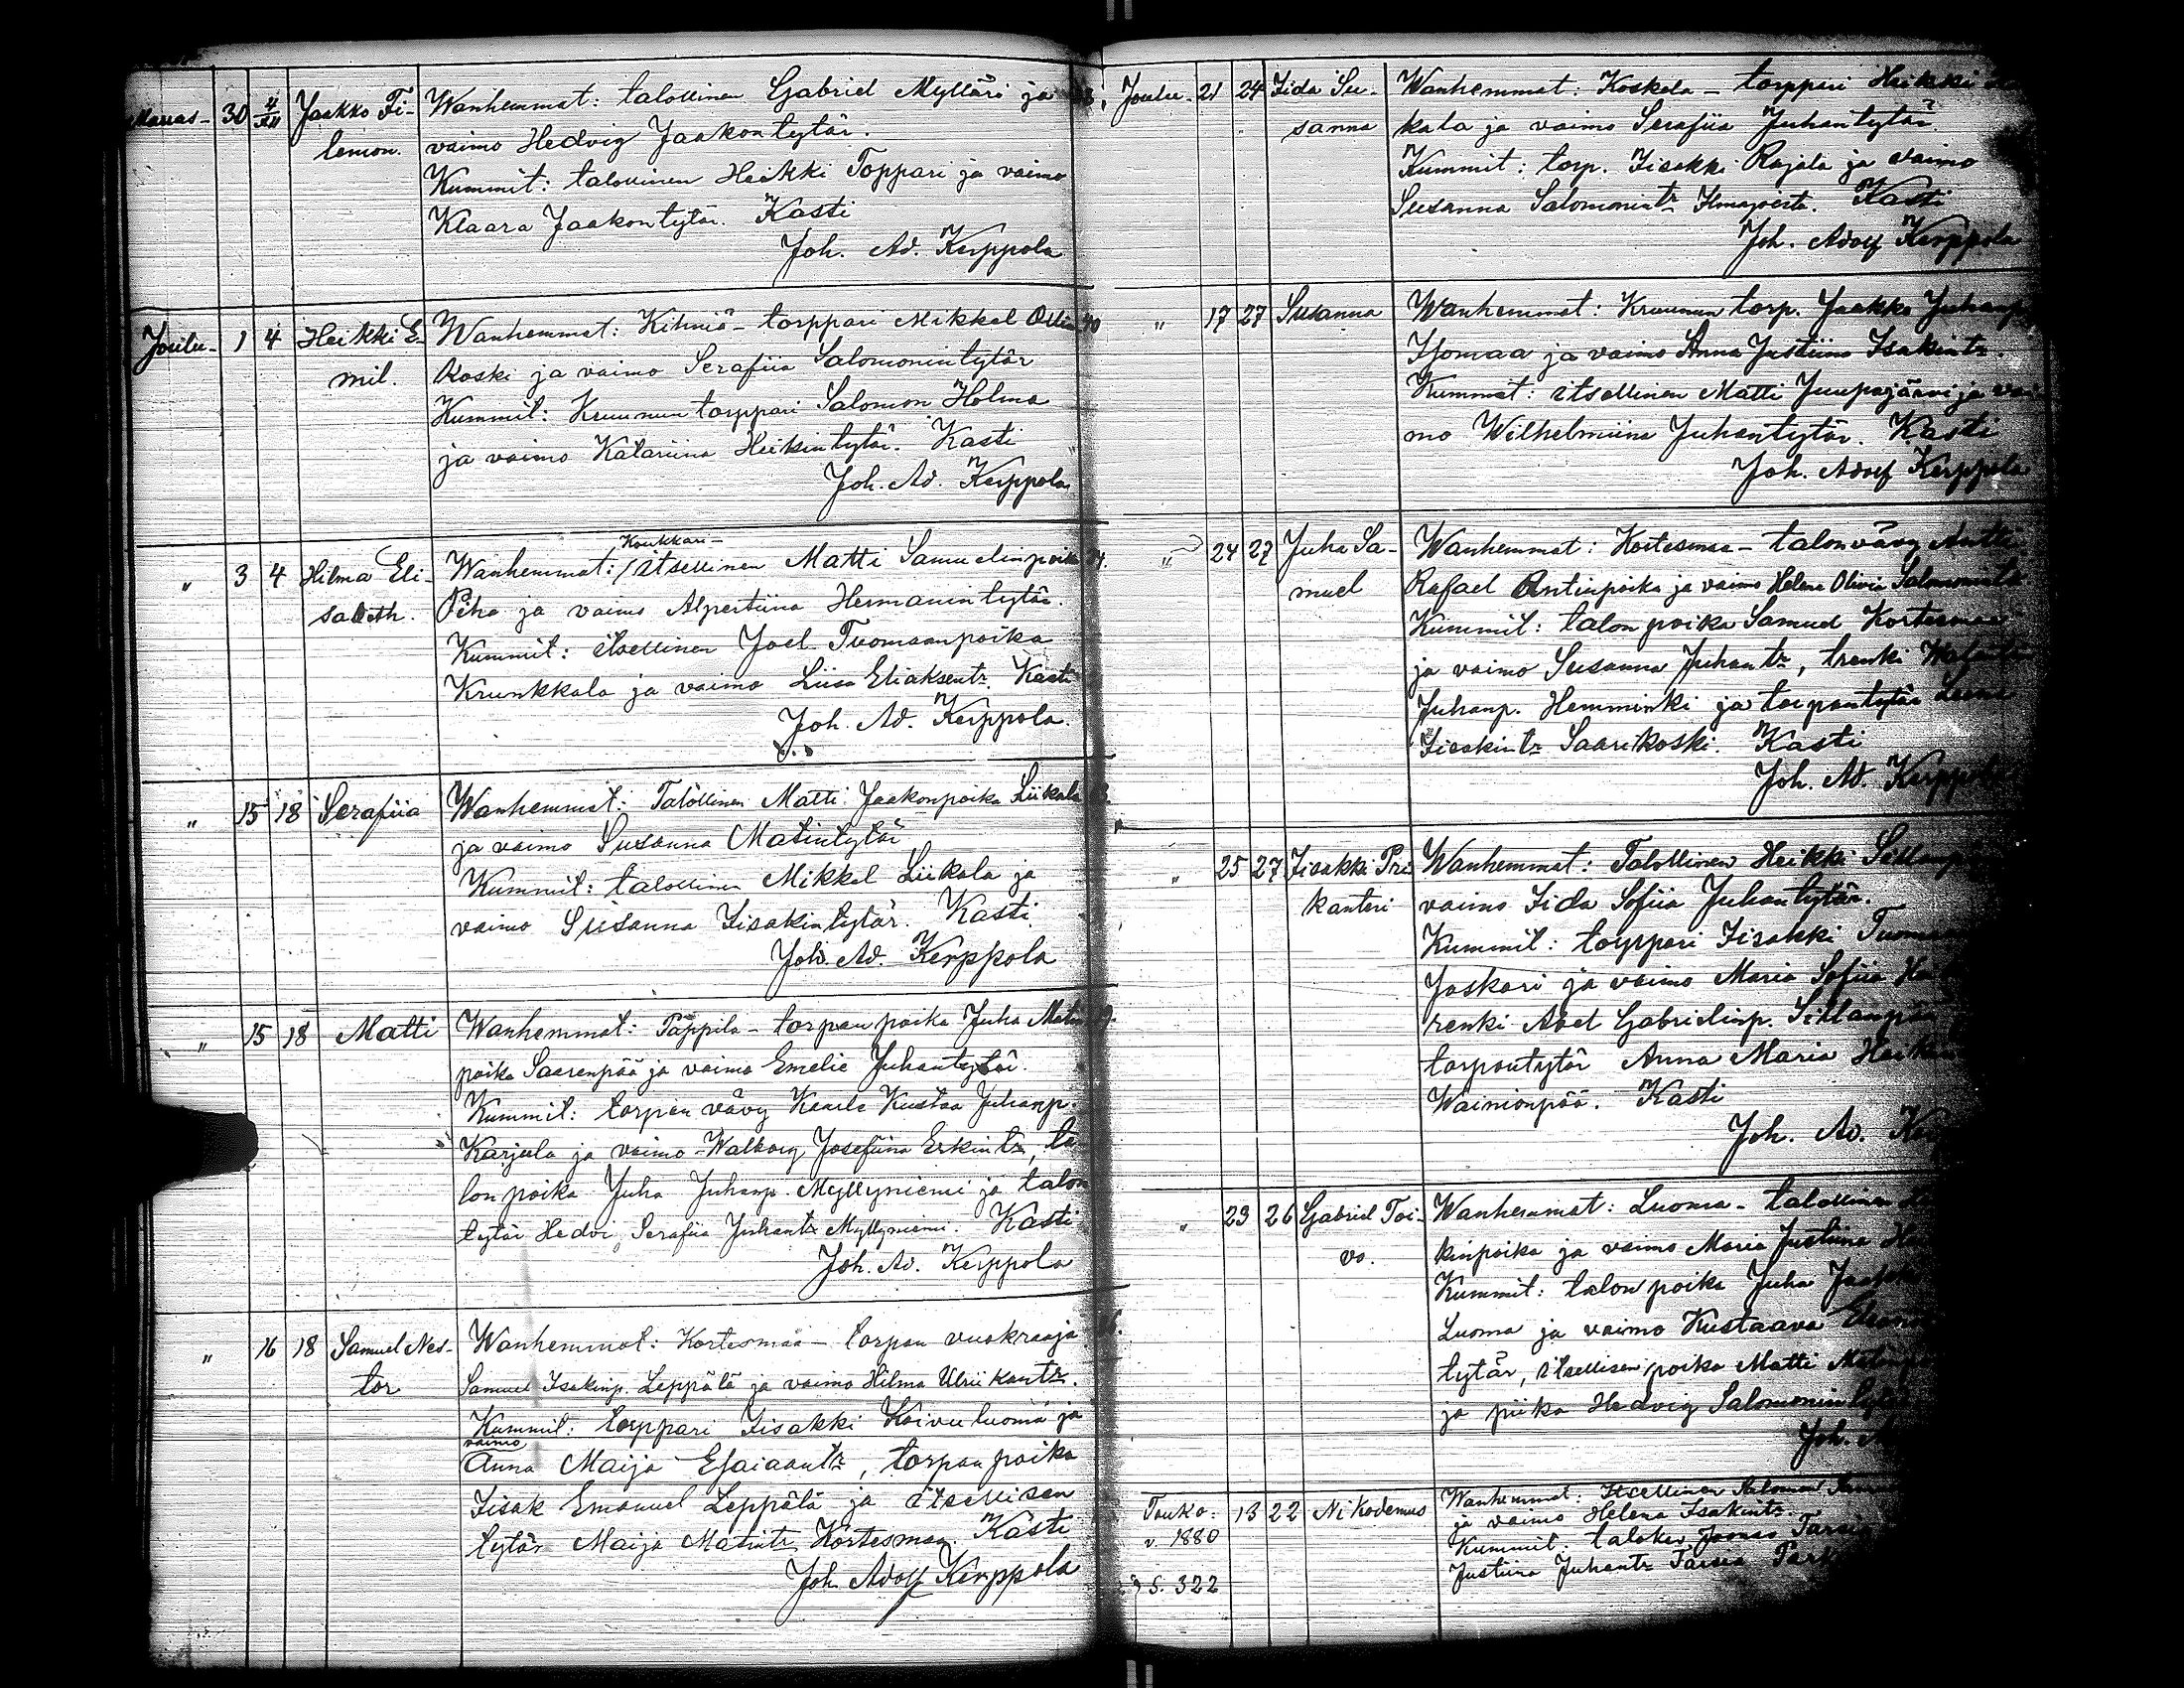 Marras- 30 4/XII Jaakko Fi- Wanhemmat: talollinen Gabriel Mylläri ja
lemon. vaimo Hedvig Jaakontytär.
Kummit: talollinen Heikki Toppari ja vaimo
Klaara Jaakontytär. Kasti
Joh. Ad. Kerppola
Joulu- 1 4 Heikki E- Wanhemmat: Kihniä- torppari Mikkel Ollin
mil. koski ja vaimo Serafiia Salomonintytär
Kummit: Kruunun torppari Salomon Holma
ja vaimo Katariina Heikintytär. Kasti
Joh. Ad. Kerppola
Koukkari-
" 3 4 Hilma Eli- Wanhemmat: / itsellinen Matti Samuelinpoika
sabeth. Piha ja vaimo Alpertiina Hermanintytär.
Kummit: itsellinen Joel Tuomaanpoika
Krunkkala ja vaimo Liisa Eliaksentr. Kasti
Joh. Ad. Kerppola.
" 15 18 Serafiia Wanhemmat: Talollinen Matti Jaakonpoika Liikala
ja vaimo Susanna Matintytär
Kummit: talollinen Mikkel Liikala ja
vaimo Susanna Iisakintytär. Kasti
Joh. Ad. Kerppola
" 15 18 Matti Wanhemmat: Pappila- torpan poika Juha Matin
poika Saarenpää ja vaimo Emelie Juhantytär.
Kummit: torpan vävy Kaarle Kustaa Juhanp.
Karjula ja vaimo Walborg Josefiina Erkintr, ta
lon poika Juha Juhanp. Myllyniemi ja talon
tytär Hedvi Serafiia Juhantr Myllyniemi. Kasti
Joh. Ad. Kerppola
" 16 18 Samuel Nes- Wanhemmat: Kortesmaa- torpan vuokraaja
tor Samuel Isakinp. Leppälä ja vaimo Hilma Ulriikantr.
Kummit: torppari Iisakki Koivuluoma ja
vaimo
Anna Maija Esaiaantr, torpan poika
Iisak Emanuel Leppälä ja itsellisen
tytär Maija Matintr Kortesmaa. Kasti
Joh. Adolf Kerppola
Joulu- 21 24 Iida Su- Wanhemmat: Koskela- torppari Heikki
sanna kala ja vaimo Serafiia Juhantytär.
Kummit: torp. Iisakki Rajala ja vaimo
Susanna Salomonintr Ilmajoelta. Kasti
Joh. Adolf Kerppola
" 17 27 Susanna Wanhemmat: Kruunun torp. Jaakko Juhanp
Isomaa ja vaimo Anna Justiina Isakintr.
Kummit: itsellinen Matti Juupajärvi ja vai
mo Wilhelmiina Juhantytär. Kasti
Joh. Adolf Kerppola
" 24 27 Juha Sa- Wanhemmat: Kortesmaa- talon vävy Antti
muel Rafael Antinpoika ja vaimo Helena Olivia Salomonintr
Kummit: talon poika Samuel Kortesmaa
ja vaimo Susanna Juhantr, trenki
Juhanp. Hemminki ja torpantytär Leena
Iisakintr Saarikoski. Kasti
Joh. Ad. Kerppola
" 25 27 Iisakki Pri- Wanhemmat: Talollinen Heikki
kanteri vaimo Iida Sofiia Juhantytär.
Kummit: torppari Iisakki
Jaskari ja vaimo Maria Sofiia
renki Abel Gabrielinp. Sillanpää
torpantytär Anna Maria
Wainionpää. Kasti
Joh. Ad.
" 23 26 Gabriel Toi- Wanhemmat: Luoma- talollinen
vo. kinpoika ja vaimo Maria Justiina
Kummit: talon poika Juha
Luoma ja vaimo Kustaava
tytär, itsellisen poika Matti
ja piika Hedvig Salomonintytär
Joh.
Touko- 13 22 Nikodemus Wanhemmat: Itsellinen Salomon
v. 1880 ja vaimo Helena Isakintr.
Kummit: talokas Joonas
s. 322 Justiina Juhantr